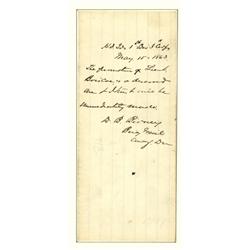 Hd Qrs 1st Div 3d Corps
May 15 - 1863
The promotion of Lieut
is a deserved
one & I think it will be
immediately made.
D. B. Birney
Brig Genl
Comg Div